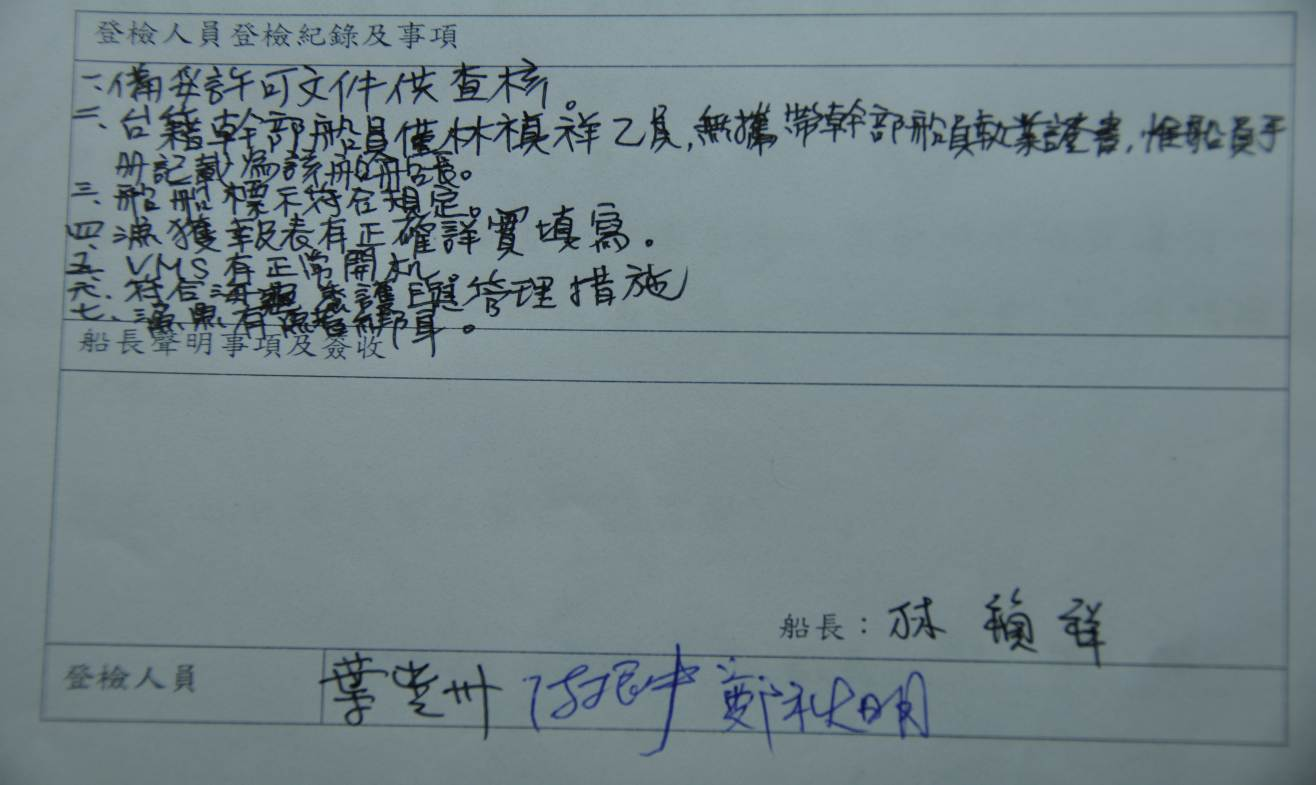 登檢人員登檢紀錄及事項
一、備妥許可文件供查核。
二、台籍幹部船員僅林禎祥乙員,無攜帶幹部船員執業證書,惟船員手
冊記載為該船船長。
三、船船標不符合規定。
四、漁獲報表有正確詳實填寫。
五、VMS有正常開机。
六、符合海 保護與管理措施
七、漁具有漁 綁耳。
船長聲明事項及簽收
船長:林禎祥
登檢人員 葉 州 鄭秋明